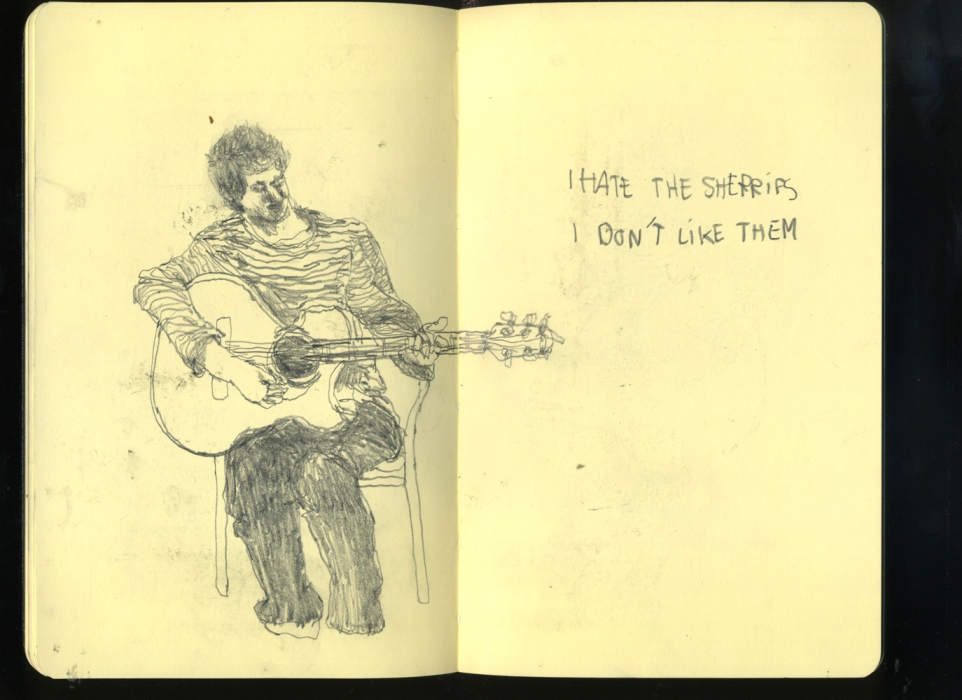 I HATE THE SHERRIFS
I DON'T LIKE THEM